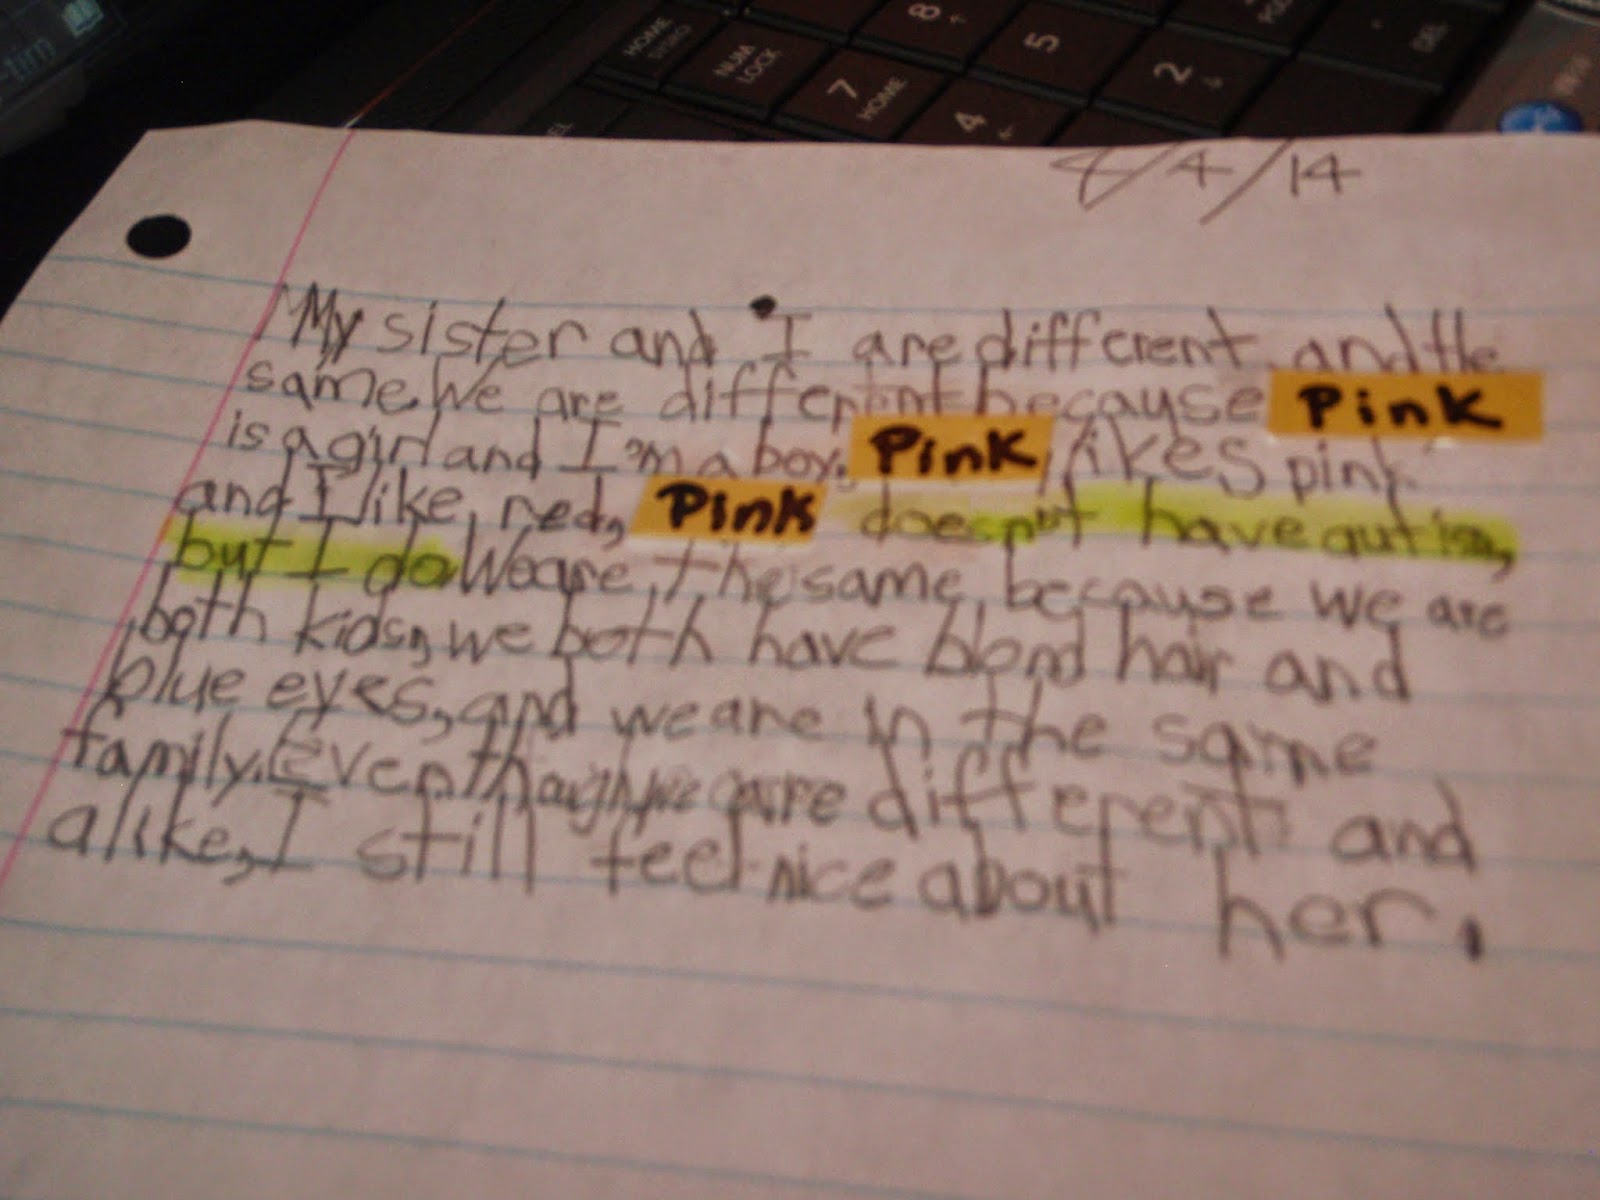 HOME
NUM LOCK
7 HOME
8
4
5
2
DEL
4/4/14
My sister and I are different and the
same. We are different because Pink
is a girl and I'm a boy. Pink likes pink
and I like red, Pink doesn't have autism,
but I do We are the same because we are
both kids, we both have blond hair and
blue eyes, and we are in the same
family. Even though we are different and
alike, I still feel nice about her.